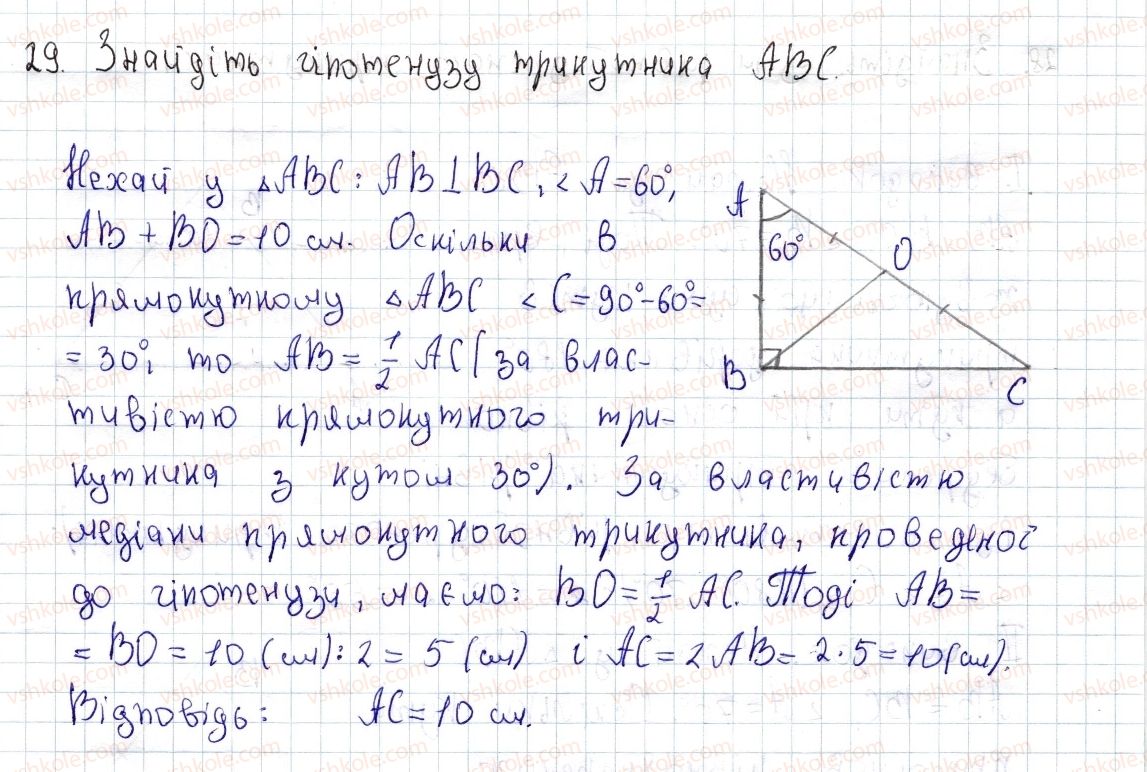 29. Знайдіть гіпотенузу трикутника ABC.
Нехай у △ABC: AB⊥BC, < A = 60°,
AB + BO = 10 см. Оскільки в
прямокутному △ABC < C = 90°-60°=
= 30°, то AB = 1/2 AC (за влас-
тивістю прямокутного три-
кутника з кутом 30°). За властивістю
медіани прямокутного трикутника, проведеної
до гіпотенузи, маємо: BO = 1/2 AC. Тоді AB =
= BO = 10 (см) : 2 = 5 (см) і AC = 2 AB = 2 · 5 = 10 (см).
Відповідь: AC = 10 см.
A
60°
O
B
C
vshkole.com